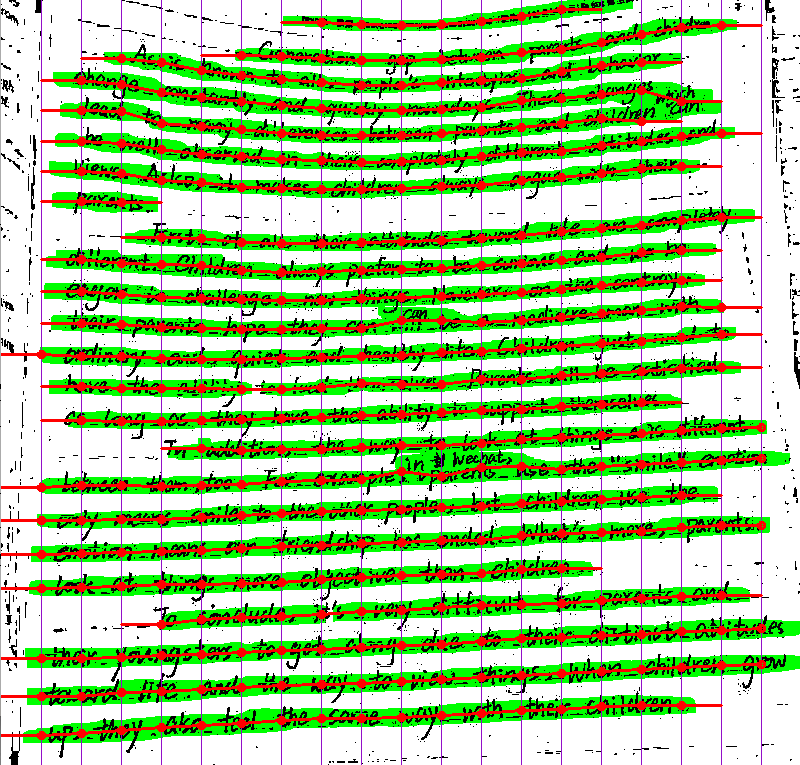 Generation gap between parents and children
As is known to all, people's lifestyles and behavior
change constantly and quickly nowadays. These changes which
lead to many differences between parents and children can
be well observed in their completely different attitudes and
views. Also it makes children always argue with their
parents.
First of all, their attitudes toward life are completely
different. Children always prefer to be curious and to be
eager to challenge new things. However, on the contrary,
their parents hope they can still be a mediocre man with
ordinary and quiet and healthy life. Children just need to
have the ability to find the Parents will be satisfied
as long as they have the ability to support themselves
In addition, the way to look at things are different
between them, too. For example, in Wechat, parents use the "smile" emotion
only means smile to the other people, but children use the
emotion means our friendship has ended. What's more, parents
look at things more objective than children.
To conclude, it's very difficult for parents and
their youngsters to get along due to their distinct attitudes
toward life and the way to view things. When children grow
up, they also feel the same way with their children